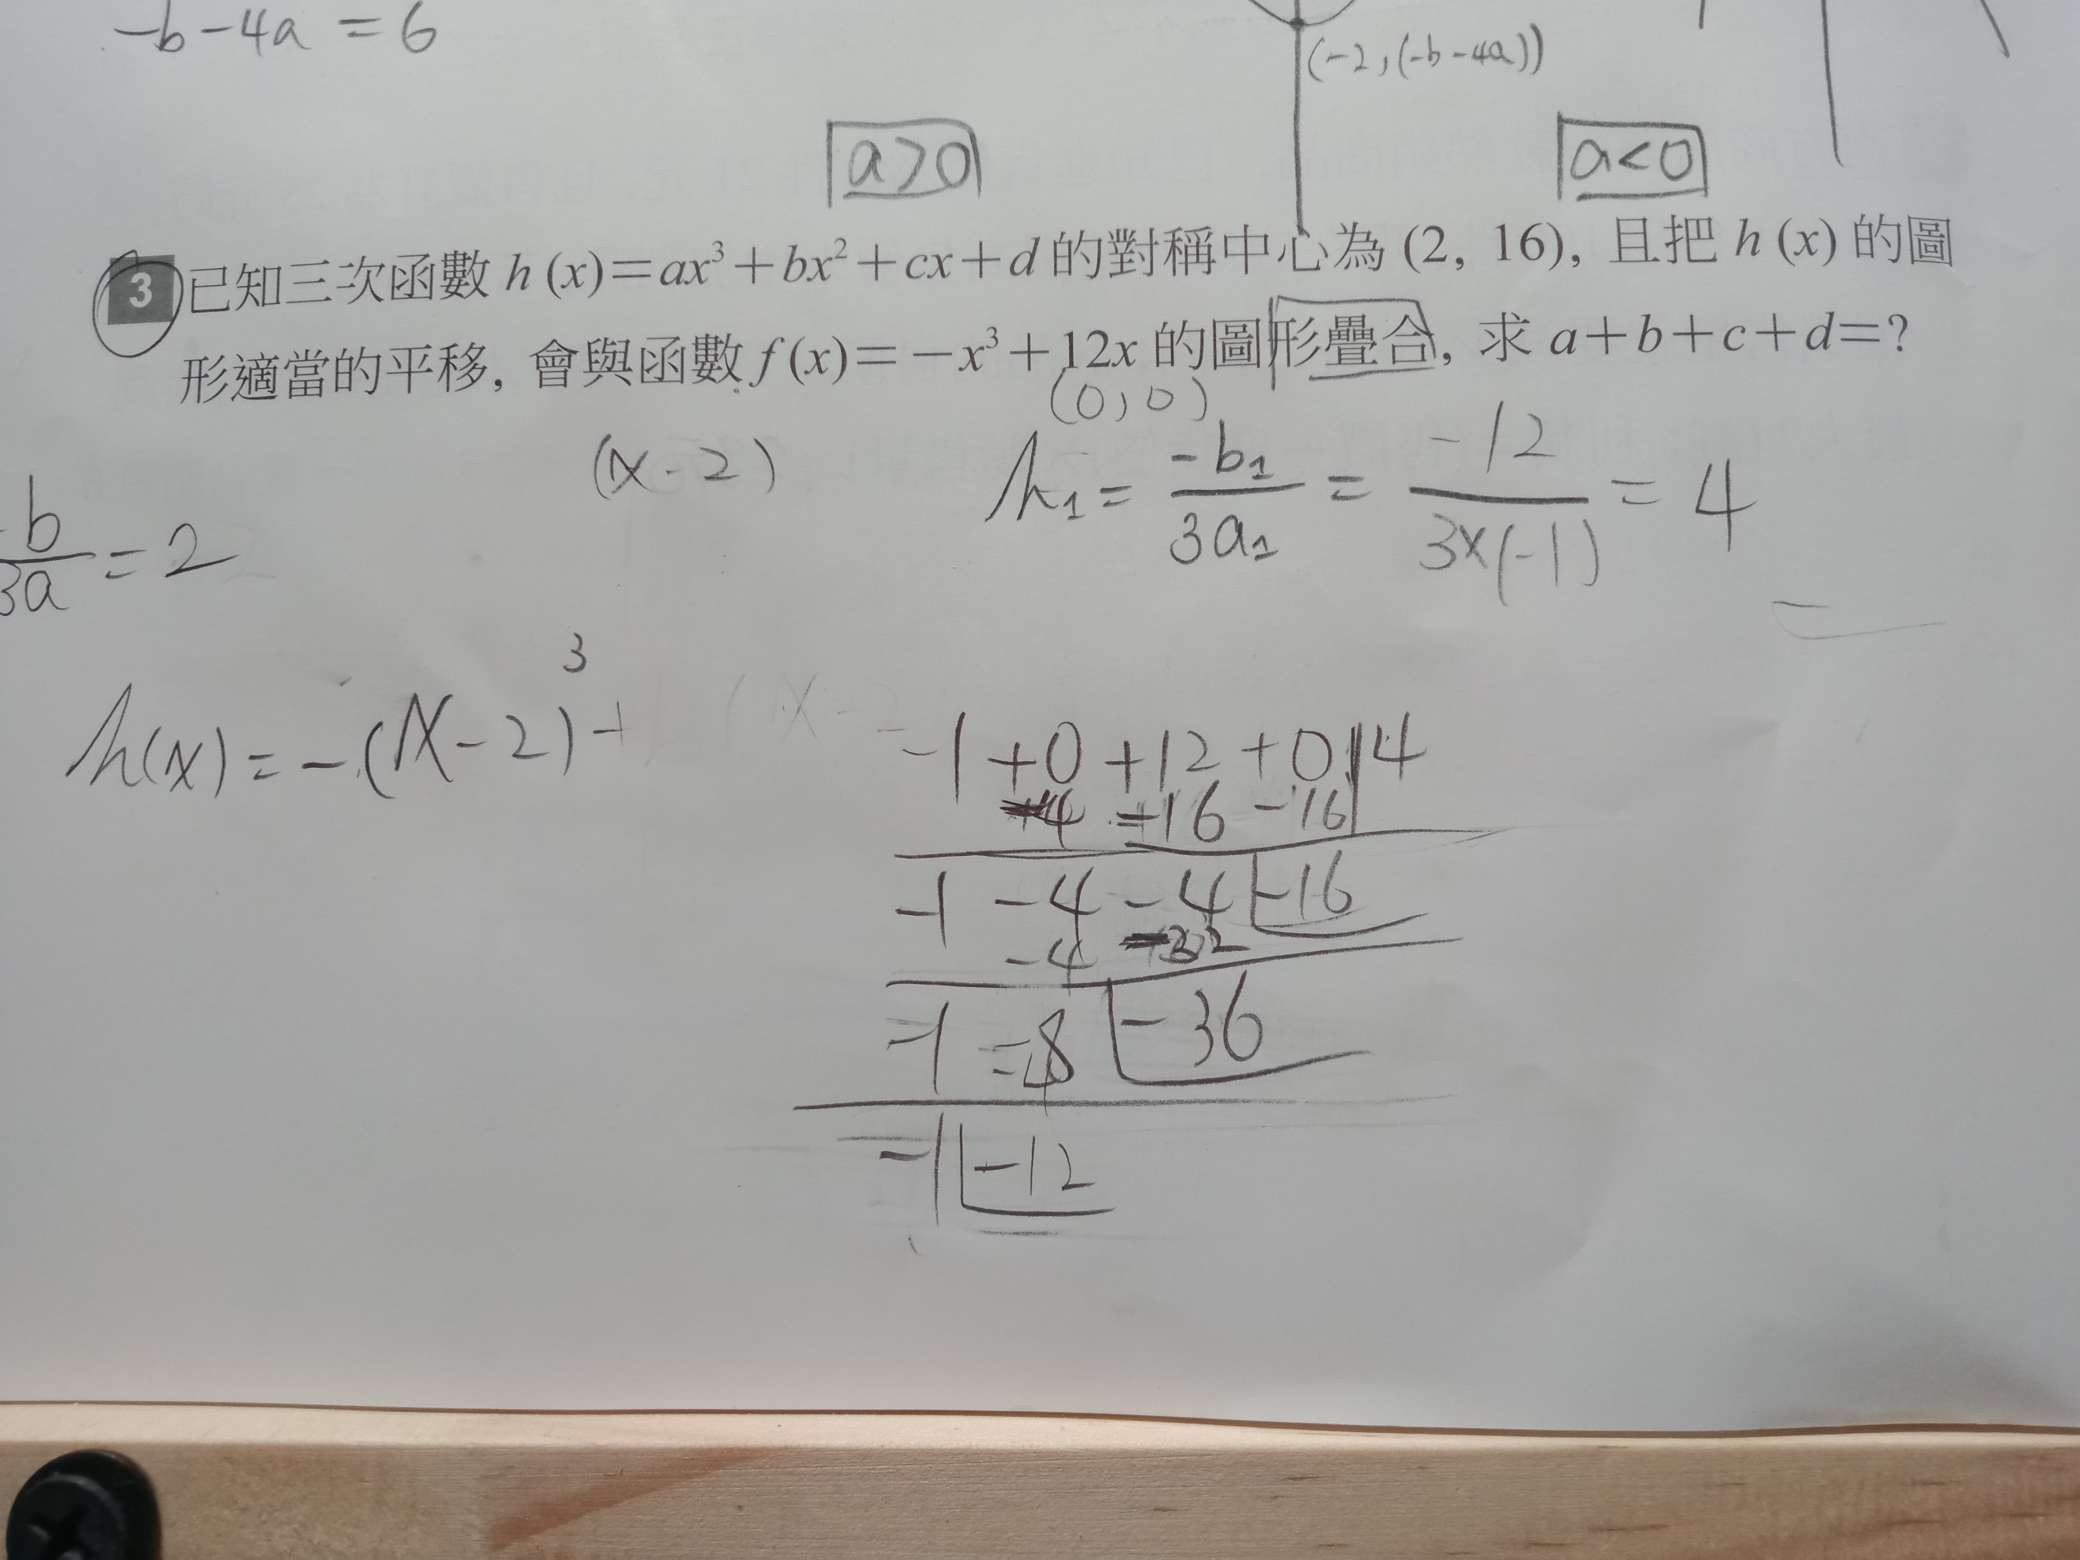 -b-4a=6
(-2,(-b-4a))
a>0
a<0
3 已知三次函數 h (x)=ax³+bx²+cx+d 的對稱中心為 (2, 16), 且把 h (x) 的圖
形適當的平移, 會與函數 f (x)=-x³+12x 的圖形疊合, 求 a+b+c+d=?
(0,0)
(x-2)
h₁=-b₁/3a₁=-12/3×(-1)=4
-b/3a=2
h(x)=-(x-2)³+
-1+0+12+0 4
-4 -16 -16
-1 -4 -4 -16
-4 -32
-1 -8 -36
-1 -12